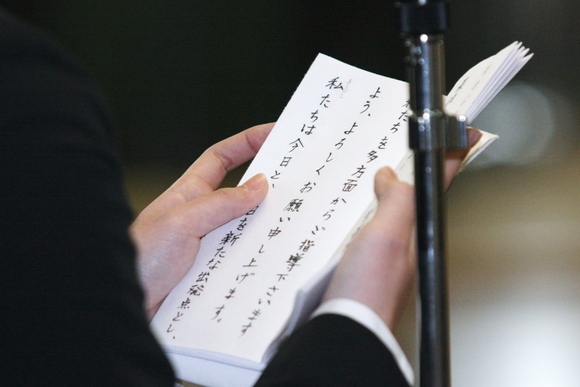 たちを多方面からご指導下さいます
よう、よろしくお願い申し上げます。
私たちは今日と 日を新たな出発点とし、